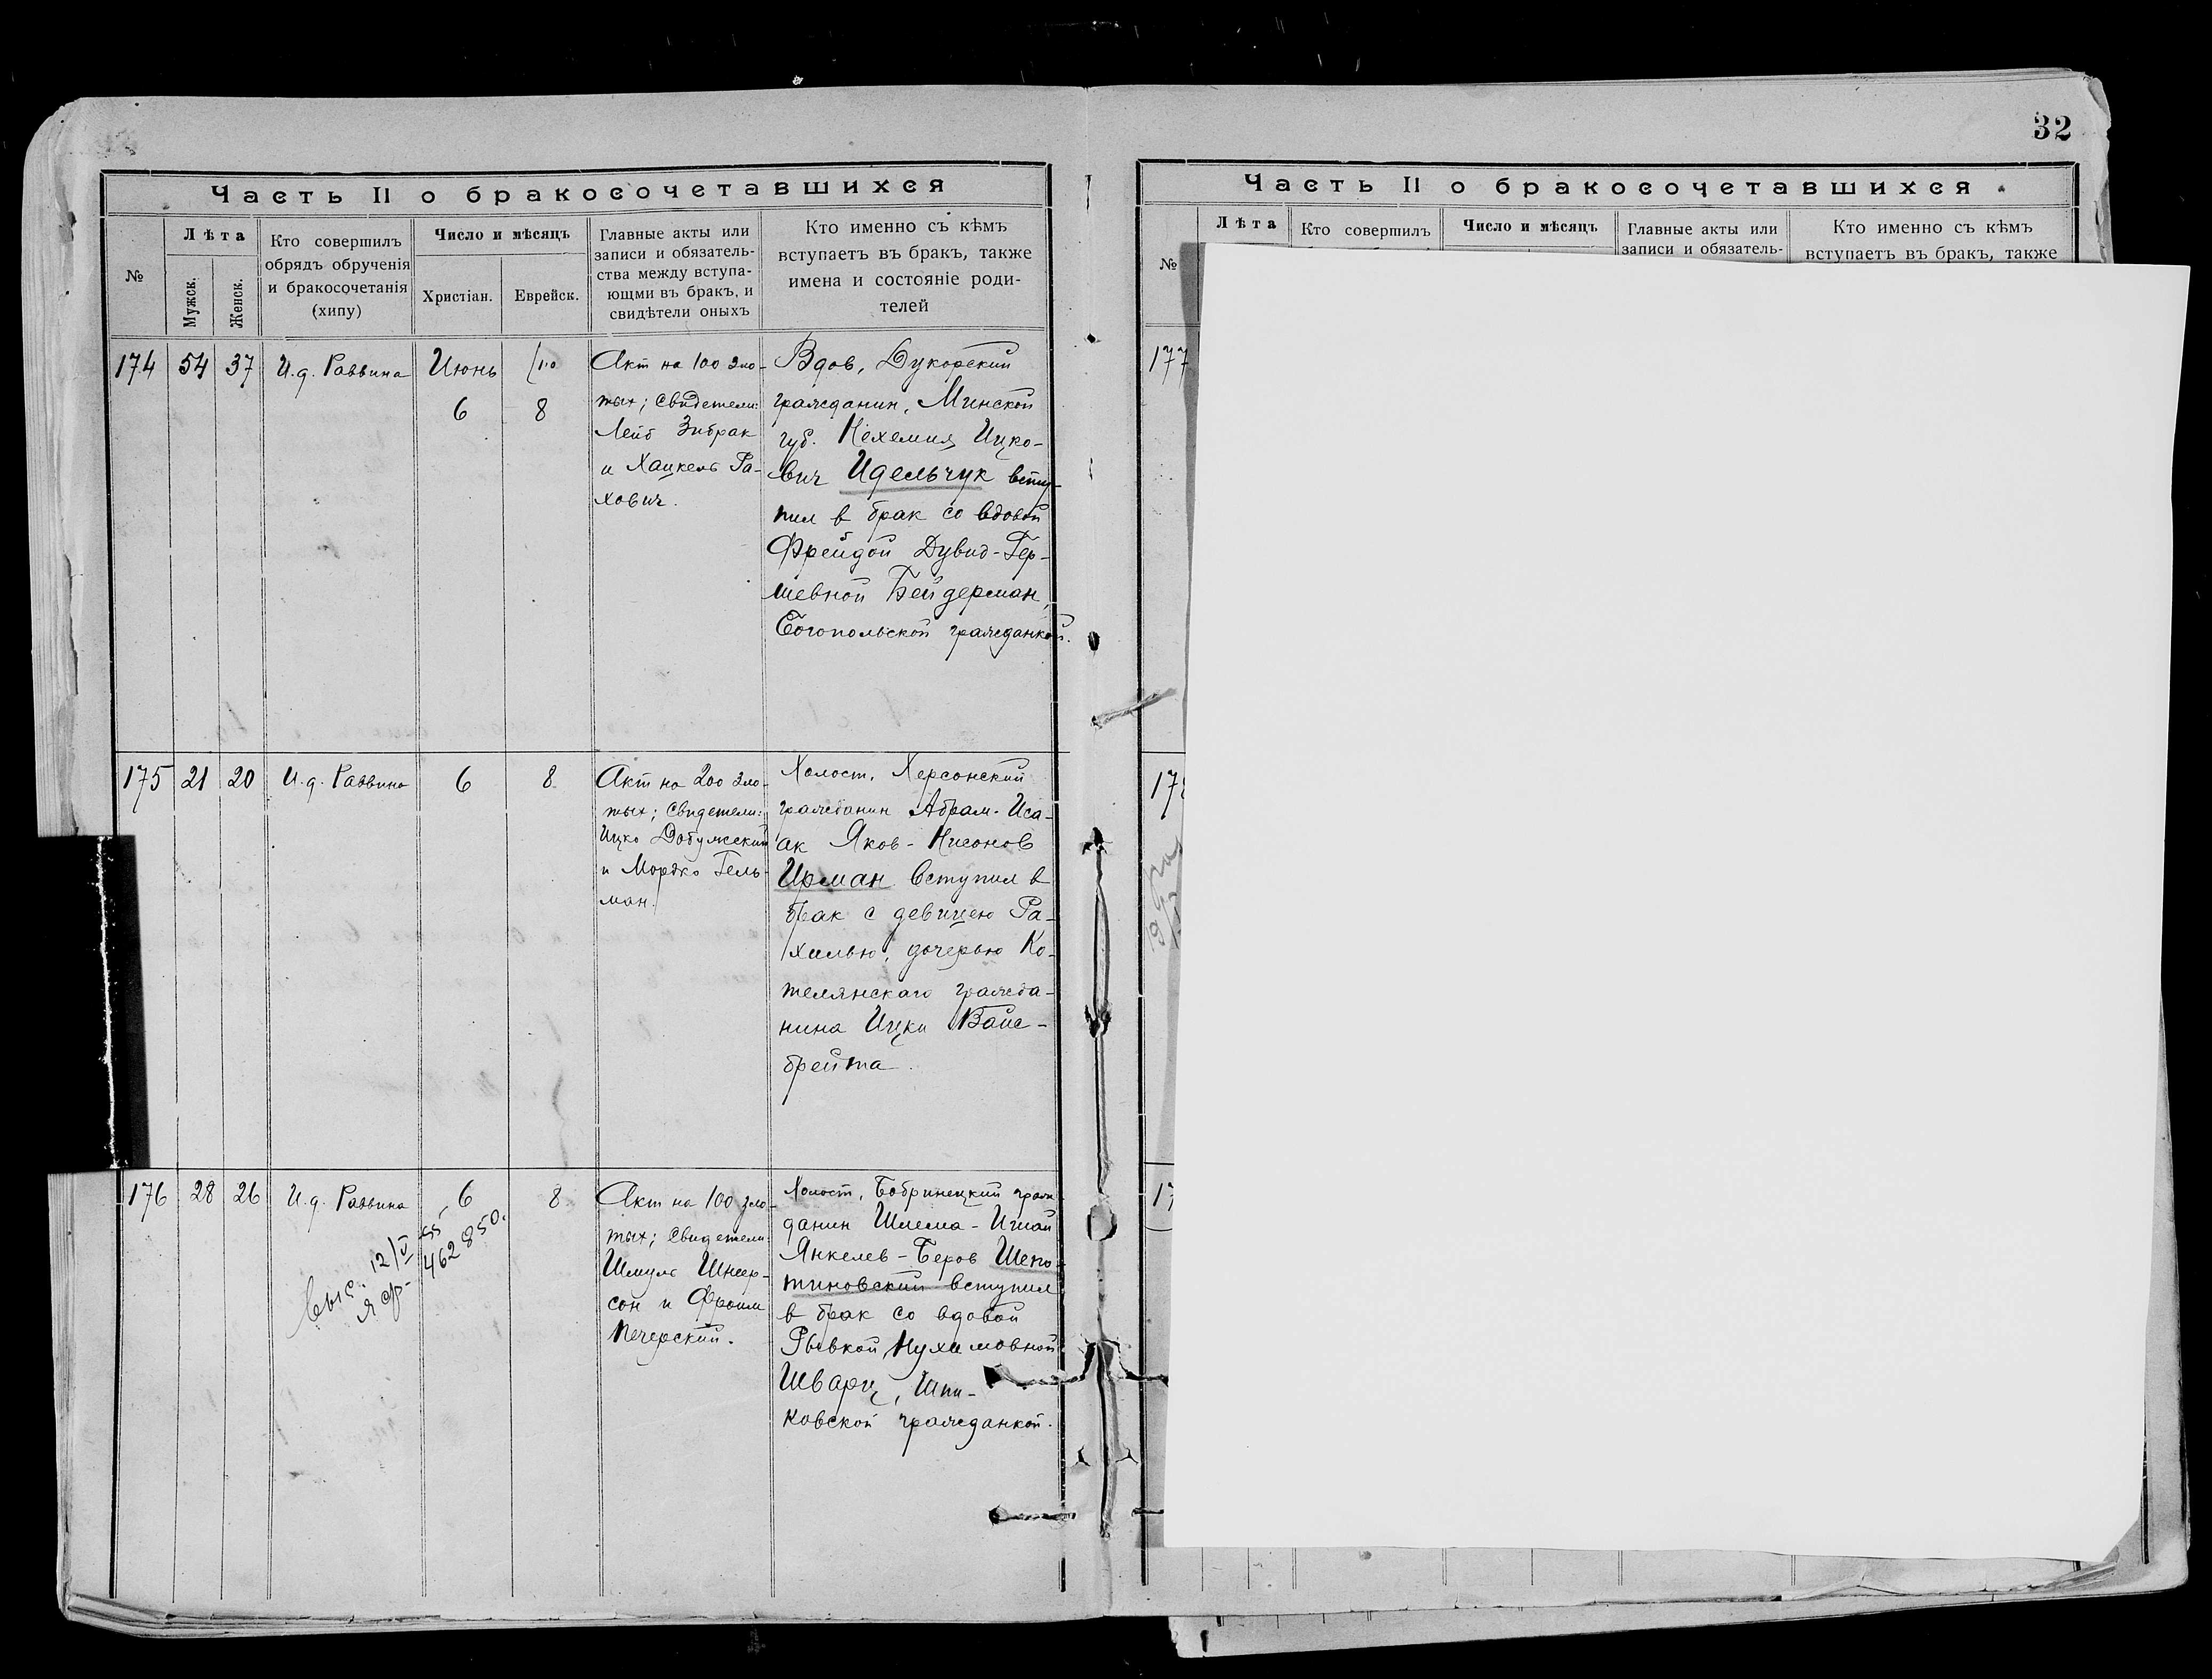 32
Часть II о бракосочетавшихся
№
Лѣта
Мужск.
Женск.
Кто совершилъ
обрядъ обрученія
и бракосочетанія
(хипу)
Число и мѣсяцъ
Христіан.
Еврейск.
Главные акты или
записи и обязатель-
ства между вступа-
ющми въ бракъ, и
свидѣтели оныхъ
Кто именно съ кѣмъ
вступаетъ въ бракъ, также
имена и состояніе роди-
телей
174
54
37
И.д. Раввина
Июнь
6
8
Акт на 100 зло-
тых; Свидетели:
Лейб Зибрак
и Хацкель Ра-
хович.
Вдов, Дукорский
гражданин, Минской
губ. Нехемия Ицко-
вич Идельчук всту-
пил в брак со вдовой
Фрейдой Дувид-Гер-
шевной Бейдерман,
Богопольской гражданкой.
175
21
20
И.д. Раввина
6
8
Акт на 200 зло-
тых; Свидетели:
Ицко Добужский
и Мордко Гель-
ман.
Холост, Херсонский
гражданин Абрам-Иса-
ак Яков-Нисонов
Ирман вступил в
брак с девицею Ра-
хилью, дочерью Ко-
телянскаго гражда-
нина Ицки Вайс-
брейта.
176
28
26
И.д. Раввина
6
8
12/V 55
462850.
Акт на 100 зло-
тых; Свидетели:
Шмуль Шнеер-
сон и Фроим
Печерский.
Холост, Бобринецкий граж-
данин Шлема-
Янкелев-Беров Шепо-
тиновский вступил
в брак со вдовой
Рывкой Нухимовной
Шварц, Шпи-
ковской гражданкой.
Часть II о бракосочетавшихся
№
Лѣта
Кто совершилъ
Число и мѣсяцъ
Главные акты или
записи и обязатель-
Кто именно съ кѣмъ
вступаетъ въ бракъ, также
177
178
17